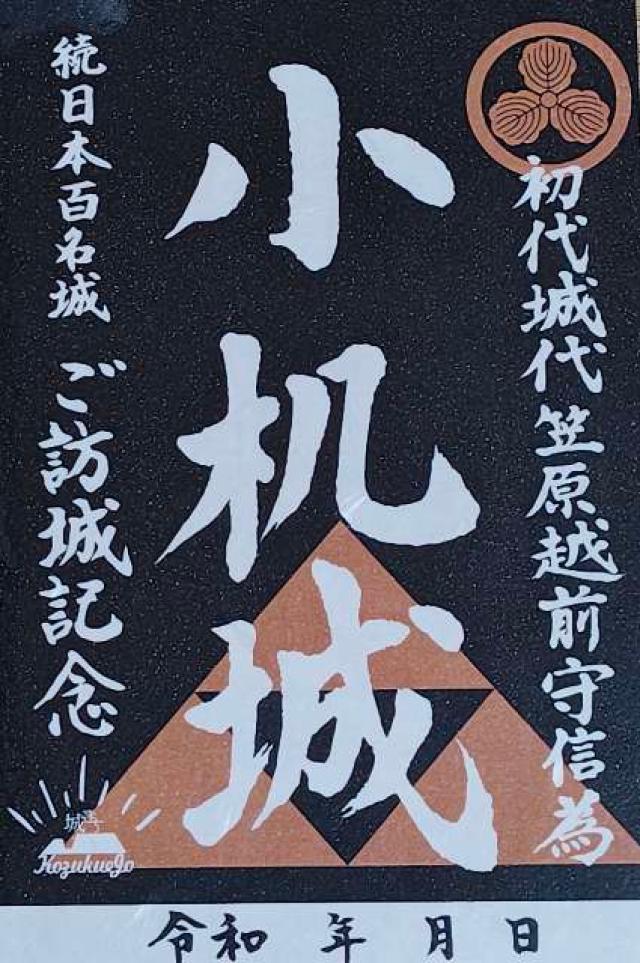 初代城代 笠原越前守信為
小机城
続日本百名城 ご訪城記念
城
KozukueJo
令和 年 月 日